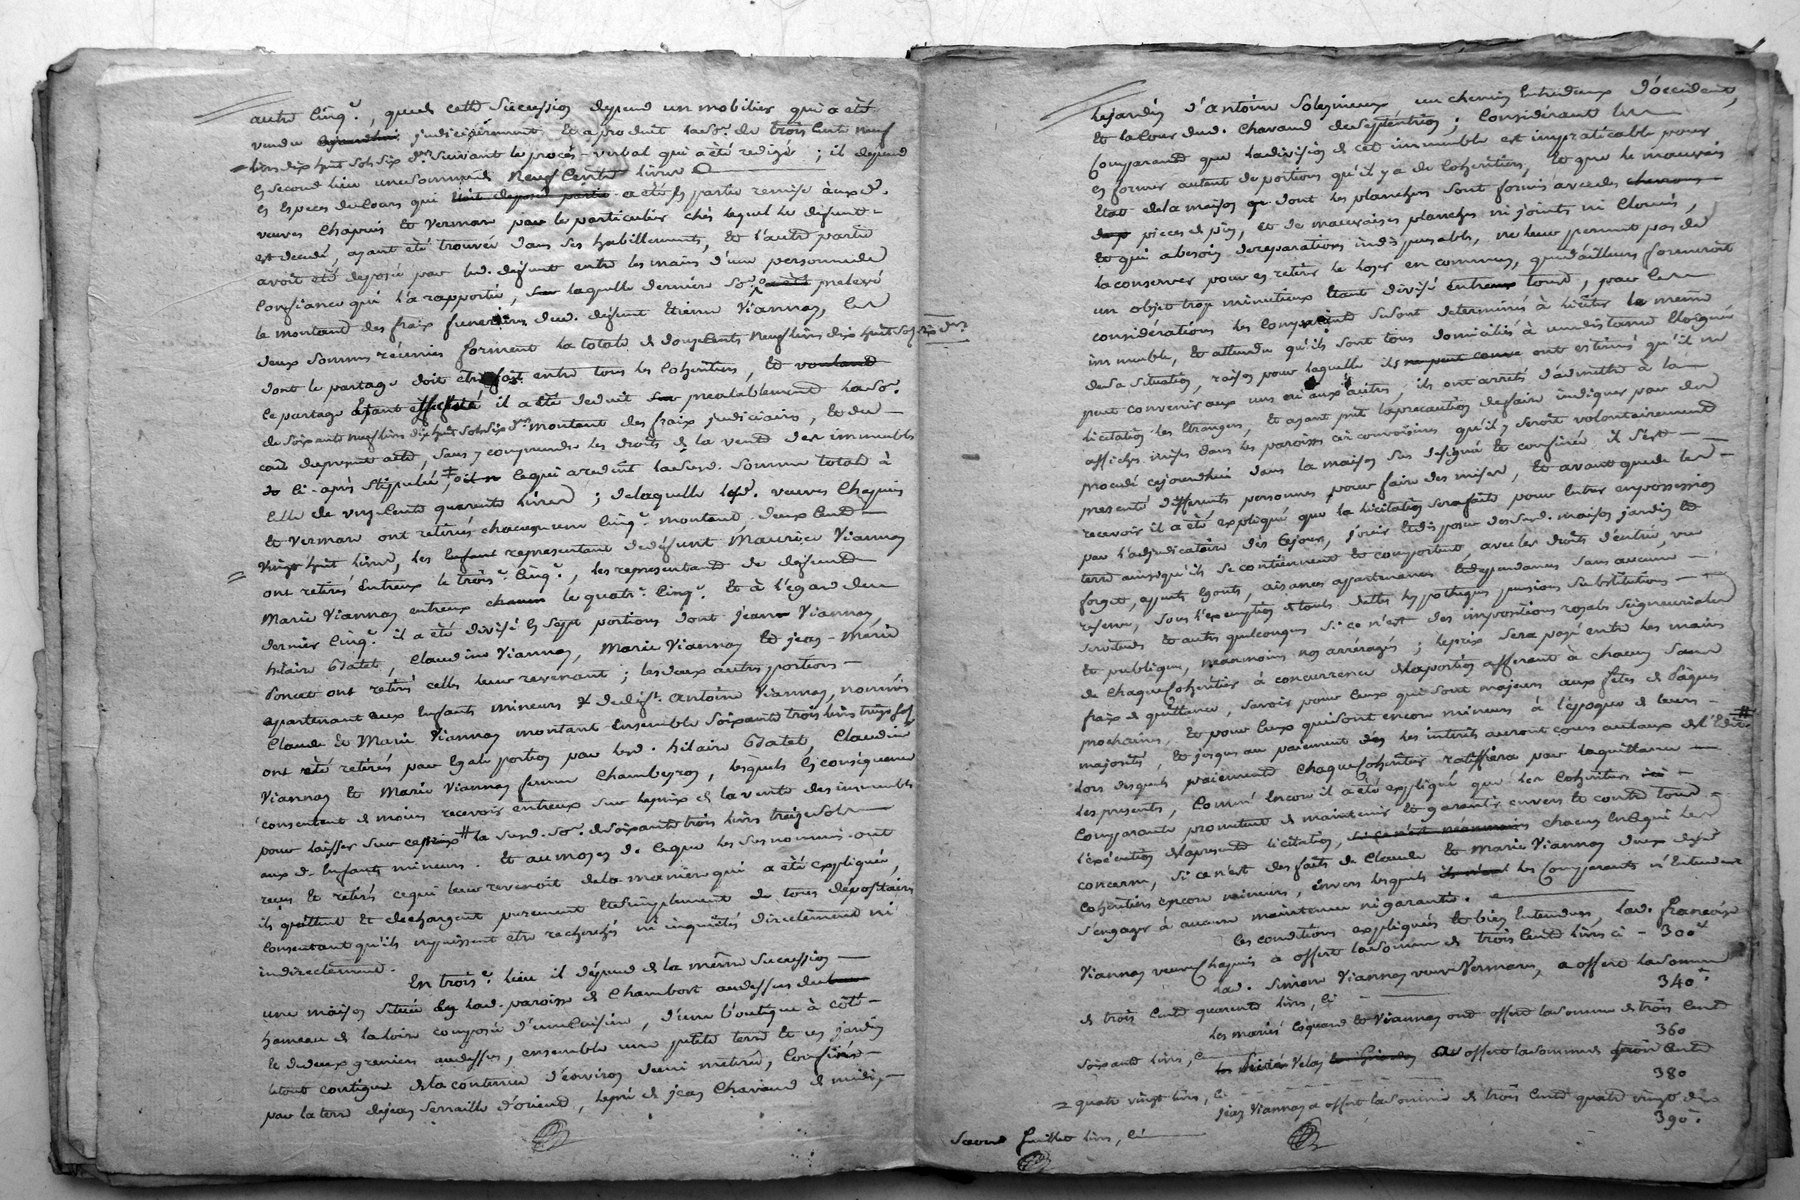 autre cinq.e, que de cette succession depend un mobilier qui a eté
vendu judiciairement et a produit la so.e de trois cent neuf
livres dix huit sols six d.rs suivant le procés-verbal qui a été redigé ; il depend
en second lieu une somme de neuf cents livres
en especes de cours qui a été en partie remise aux d.
veuves Chapuis et Vermare par le particulier chés lequel le defunt
est decedé, ayant été trouvée dans ses habillements, et l'autre partie
avoit été deposée par led. defunt entre les mains d'une personne de
confiance qui l'a rapportée, laquelle derniere so.e prelevé
le montant des frais funeraires dud. defunt Etienne Viannay, les
deux sommes réunies forment la totale de douze cents neuf livres dix huit sols six d.rs
dont le partage doit etre fait entre tous les cohéritiers, et
le partage etant effectué il a été deduit prealablement la so.e
de soixante neuf livres dix huit sols six d.rs montant des frais judiciaires, et du
coût du present acte, sans y comprendre les droits de la vente des immeubles
ci-après stippulée, ce qui a reduit la susd. somme totale à
celle de onze cents quarante livres ; de laquelle lesd. veuves Chapuis
et Vermare ont retirés chacune une cinq.e montant deux cent
vingt huit livres, les representant de defunt Maurice Viannay
ont retirés entreux le trois.e cinq.e, les representants de defunte
Marie Viannay entreux le quatr.e cinq.e et à l'égard du
dernier cinq.e il a été divisé en sept portions dont jean Viannay,
hilaire Gtatet, Claudine Viannay, Marie Viannay et jean-Marie
Poncet ont retirés celles leur revenant ; les deux autres portions
appartenant aux enfants mineurs de def.t antoine Viannay, nommés
Claude et Marie Viannay montant ensemble soixante trois livres treize sols
ont été retirés par egale portion par lesd. hilaire Gtatet, Claudine
Viannay et Marie Viannay femme Chambeyron, lesquels en conséquence
consentent de moins recevoir entreux sur le prix de la vente des immeubles
pour laisser sur ce prix la susd. so.e de soixante trois livres treize sols
aux d. enfants mineurs. Et au moyen de ce que les susnommés ont
reçu et retirés ce qui leur revenoit de la maniere qui a été expliquée,
ils quittent et dechargent purement et simplement de tous dépositaires
consentant qu'ils ne puissent etre recherchés ni inquiétés directement ni
indirectement.
En trois.e lieu il dépend de la même succession
une maison située en lad. paroisse de Chambort au dessus du
hameau de la loire composée d'une cuisine, d'une boutique à côté
et de deux greniers au dessus, ensemble une petite terre et un jardin
le tout contigue de la contenue d'environ demi meterée, confinés
par la terre de jean Serraille d'orient, le pré de jean Chavand de midi,
le jardin d'antoine Solegnieux un chemin entre deux d'occident,
et la cour dud. Chavand de septentrion ; considérant les
comparants que la division de cet immeuble est impraticable pour
en former autant de portions qu'il y a de cohéritiers, et que le mauvais
etat de la maison dont les planchers sont formés avec des
pieces de pin, et de mauvaises planches ni joints ni cloués,
et qui a besoin de reparations indispensables, ne leur permet pas de
la conserver pour en retirer le loyer en commun, que d'ailleurs formeroit
un objet trop minutieux etant divisé entre tous, par les
considérations les comparants se sont determinés à liciter le meme
immeuble, et attendu qu'ils sont tous domiciliés à une distance eloignée
de sa situation, raison pour laquelle ils ont estimés qu'il ne
peut convenir aux uns ni aux autres, ils ont arretés d'admettre à la
licitation les etrangers, et ayant prit la precaution de faire indiquer par des
affiches mises dans les paroisses circonvoisines qu'il y seroit volontairement
procedé cejourdhui dans la maison sus designée et confinée, il s'est
presenté differents personnes pour faire des mises, et avant que de les
recevoir il a été expliqué que la licitation sera faite pour entrer en possession
par l'adjudicataire dès ce jour, jouir et disposer des susd. maison jardin et
terre ainsi qu'ils se contiennent et comportent, avec les droits d'entrée, vue
forget, egouts, aisances appartenances et dependances sans aucune
reserve, sous l'exemption de toutes dettes hypotheques pensions substitutions
servitudes et autres quelconques si ce n'est des impositions royales seigneuriales
et publiques, neanmoins non arreragés ; le prix sera payé entre les mains
de chaque cohéritier à concurrence de la portion afferant à chacun sans
frais de quittance, savoir pour ceux qui sont majeurs aux fêtes de Pâques
prochaines, et pour ceux qui sont encore mineurs à l'époque de leurs
majorités, et jusques au paiement les intérêts auront cours au taux de l'Edit
lors desquels paiements chaque cohéritier ratiffiera par la quittance
les presents, comme encore il a été expliqué que les cohéritiers
comparants promettent de maintenir et garantir envers et contre tous
l'exécution de la presente licitation, chacun en ce qui les
concerne, si ce n'est des faits de Claude et Marie Viannay deux des d.
cohéritiers encore mineurs, envers lesquels les comparants n'entendent
s'engager à aucune maintenue ni garantie.
Ces conditions expliquées et bien entendues, lad. françoise
Viannay veuve Chapuis a offert la somme de trois cents livres ci - 300
lad. Simone Viannay veuve Vermare, a offert la somme
de trois cents quarante livres, ci 340
les mariés Coquard et Viannay ont offert la somme de trois cents
soixante livres, ci 360
Velay a offert la somme de trois cents
quatre vingt livres, ci 380
jean Viannay a offert la somme de trois cents quatre vingt dix
livres, ci 390
second feuillet